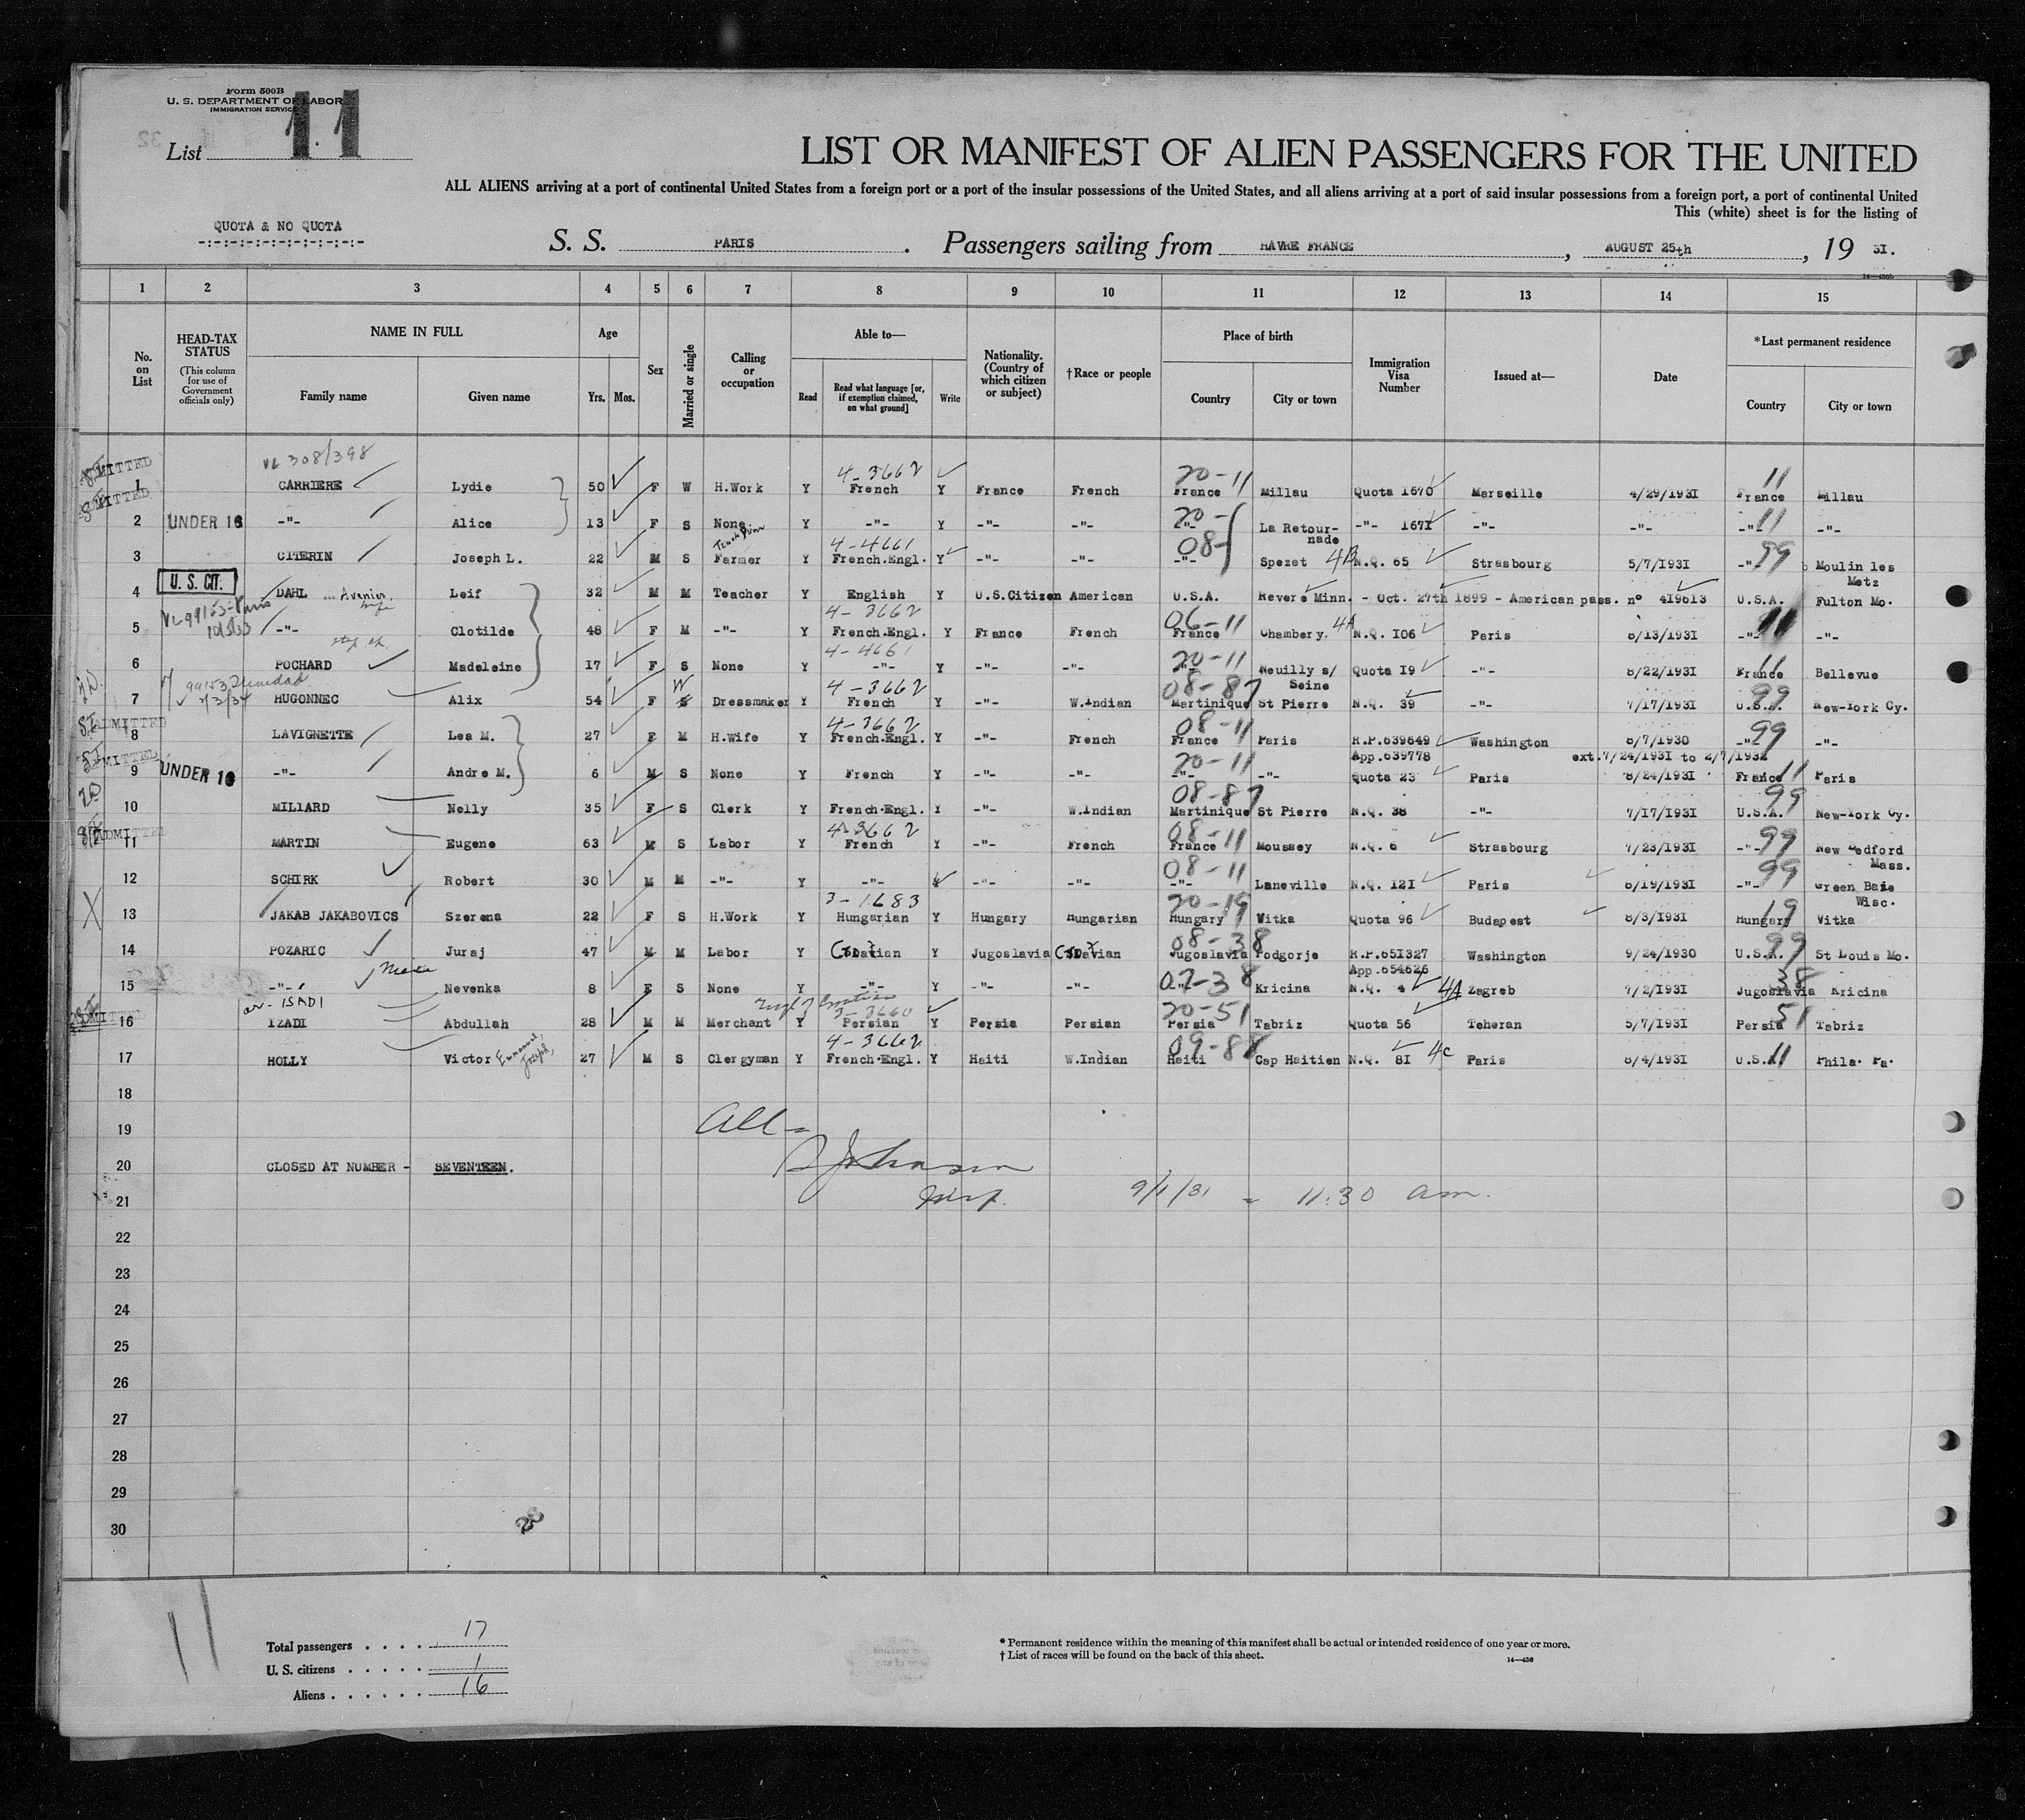 Form 500B
U. S. DEPARTMENT OF LABOR
IMMIGRATION SERVICE
List 11
LIST OR MANIFEST OF ALIEN PASSENGERS FOR THE UNITED
ALL ALIENS arriving at a port of continental United States from a foreign port or a port of the insular possessions of the United States, and all aliens arriving at a port of said insular possessions from a foreign port, a port of continental United
This (white) sheet is for the listing of
QUOTA & NO QUOTA
-:-:-:-:-:-:-:-:-:-
S. S. PARIS. Passengers sailing from HAVRE FRANCE, AUGUST 25th, 19 31.
1 2 3 4 5 6 7 8 9 10 11 12 13 14 15
No. on List
HEAD-TAX STATUS (This column for use of Government officials only)
NAME IN FULL Family name Given name
Age Yrs. Mos.
Sex
Married or single
Calling or occupation
Able to— Read Read what language [or, if exemption claimed, on what ground] Write
Nationality. (Country of which citizen or subject)
†Race or people
Place of birth Country City or town
Immigration Visa Number
Issued at—
Date
*Last permanent residence Country City or town
VL 308/398
ADMITTED 4-3662 20-11 11
1 CARRIERE Lydie 50 F W H.Work Y French Y France French France Millau Quota 1670 Marseille 4/29/1931 France Millau
ADMITTED 20- 11
2 UNDER 16 -"- Alice 13 F S None Y -"- Y -"- -"- -"- La Retour-nade -"- 1671 -"- -"- -"- -"-
4-4661 08- 4B 99
3 CITERIN Joseph L. 22 M S Farmer Y French.Engl. Y -"- -"- -"- Spezet N.Q. 65 Strasbourg 5/7/1931 -"- Moulin les Metz
U. S. CIT.
4 DAHL Leif 32 M M Teacher Y English Y U.S.Citizen American U.S.A. Revere Minn. - Oct. 27th 1899 - American pass. n° 419613 U.S.A. Fulton Mo.
4-3662 06-11 4A 11
5 -"- Clotilde 48 F M -"- Y French.Engl. Y France French France Chambery. N.Q. 106 Paris 8/13/1931 -"- -"-
4-4661 20-11 11
6 POCHARD Madeleine 17 F S None Y -"- Y -"- -"- -"- Neuilly s/ Seine Quota 19 -"- 8/22/1931 France Bellevue
99153 Trinidad
7/2/34 W 4-3662 08-87 99
7 HUGONNEC Alix 54 F S Dressmaker Y French Y -"- W.Indian Martinique St Pierre N.Q. 39 -"- 7/17/1931 U.S.A. New-York Cy.
ADMITTED 4-3662 08-11 99
8 LAVIGNETTE Lea M. 27 F M H.Wife Y French.Engl. Y -"- French France Paris R.P.639649 Washington 8/7/1930 -"- -"-
App.639778 ext.7/24/1931 to 2/7/1932
ADMITTED 20-11 11
9 UNDER 16 -"- Andre M. 6 M S None Y French Y -"- -"- -"- -"- Quota 23 Paris 8/24/1931 France Paris
08-87 99
10 MILLARD Nelly 35 F S Clerk Y French.Engl. Y -"- W.Indian Martinique St Pierre N.Q. 38 -"- 7/17/1931 U.S.A. New-York Cy.
ADMITTED 4-3662 08-11 99
11 MARTIN Eugene 63 M S Labor Y French Y -"- French France Moussey N.Q. 6 Strasbourg 7/23/1931 -"- New Bedford Mass.
08-11 99
12 SCHIRK Robert 30 M M -"- Y -"- Y -"- -"- -"- Laneville N.Q. 121 Paris 8/19/1931 -"- Green Baie Wisc.
X 3-1683 20-19 19
13 JAKAB JAKABOVICS Szerena 22 F S H.Work Y Hungarian Y Hungary Hungarian Hungary Vitka Quota 96 Budapest 8/3/1931 Hungary Vitka
08-38 99
14 POZARIC Juraj 47 M M Labor Y Croatian Y Jugoslavia Jugoslavia Podgorje R.P.651327 Washington 9/24/1930 U.S.A. St Louis Mo.
App.654626
07-38 4A 38
15 -"- Nevenka 8 F S None Y -"- Y -"- -"- -"- Kricina N.Q. 4 Zagreb 7/2/1931 Jugoslavia Kricina
or - ISADI 3-3660 20-51 51
ADMITTED
16 IZADI Abdullah 28 M M Merchant Y Persian Y Persia Persian Persia Tabriz Quota 56 Teheran 5/7/1931 Persia Tabriz
4-3662 09-88 4c 11
17 HOLLY Victor Emmanuel, Joseph, 27 M S Clergyman Y French.Engl. Y Haiti W.Indian Haiti Cap Haitien N.Q. 81 Paris 8/4/1931 U.S.A. Phila. Pa.
18
19 All -
20 CLOSED AT NUMBER - SEVENTEEN. Johnson
21 Insp. 9/1/31 - 11:30 am.
22
23
24
25
26
27
28
29
30
11
Total passengers . . . . 17
U. S. citizens . . . . . 1
Aliens . . . . . . 16
* Permanent residence within the meaning of this manifest shall be actual or intended residence of one year or more.
† List of races will be found on the back of this sheet.
14—430